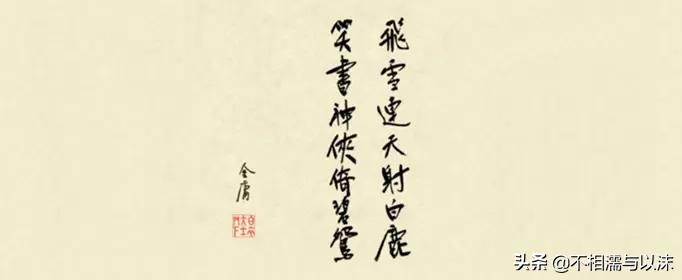 飛雪連天射白鹿
笑書神俠倚碧鴛
金庸
头条 @不相濡与以沫